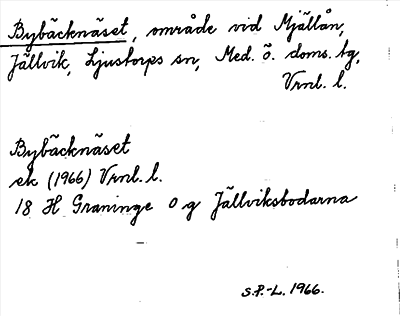 Bybäcknäset, område vid Mjällån,
Jällvik, Ljustorps sn, Med. ö. doms. tg,
Vrnl. l.
Bybäcknäset
ek (1966) Vrnl. l.
18 H Graninge 0 g Jällviksbodarna
S.P.-L. 1966.